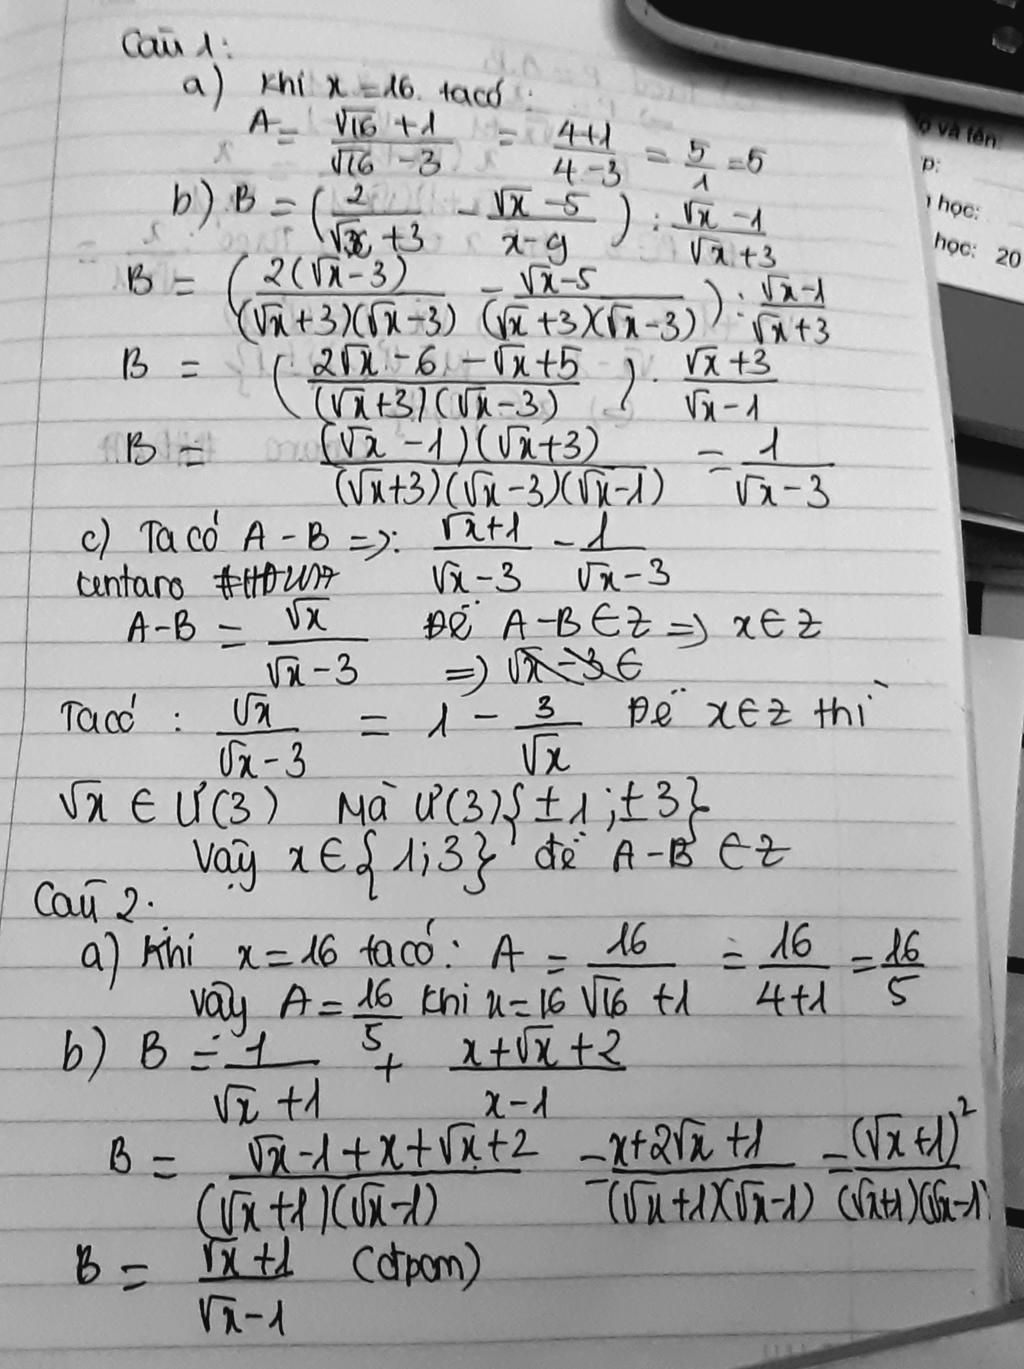 Câu 1:
a) Khi x = 16 ta có :
A = (√16 + 1)/(√16 - 3) = (4+1)/(4-3) = 5/1 = 5
b) B = (2/(√x + 3) - (√x - 5)/(x - 9)) : (√x - 1)/(√x + 3)
B = (2(√x - 3)/((√x + 3)(√x - 3)) - (√x - 5)/((√x + 3)(√x - 3))) : (√x - 1)/(√x + 3)
B = ((2√x - 6 - √x + 5)/((√x + 3)(√x - 3))) . (√x + 3)/(√x - 1)
B = ((√x - 1)(√x + 3))/((√x + 3)(√x - 3)(√x - 1)) = 1/(√x - 3)
c) Ta có A - B =>: (√x + 1)/(√x - 3) - 1/(√x - 3)
Centaro
A - B = √x/(√x - 3) Để A - B ∈ Z => x ∈ Z
=> √x - 3 ∈
Ta có : √x/(√x - 3) = 1 - 3/√x Để x ∈ Z thì
√x ∈ Ư(3) Mà Ư(3){±1; ±3}
Vậy x ∈ {1; 3} để A - B ∈ Z
Câu 2.
a) Khi x = 16 ta có: A = 16/(√16 + 1) = 16/(4+1) = 16/5
Vậy A = 16/5 khi x = 16
b) B = 1/(√x + 1) + (x + √x + 2)/(x - 1)
B = (√x - 1 + x + √x + 2)/((√x + 1)(√x - 1)) = (x + 2√x + 1)/((√x + 1)(√x - 1)) = (√x + 1)²/((√x + 1)(√x - 1)
B = (√x + 1)/(√x - 1) (đpcm)
và tên
p:
học:
học: 20